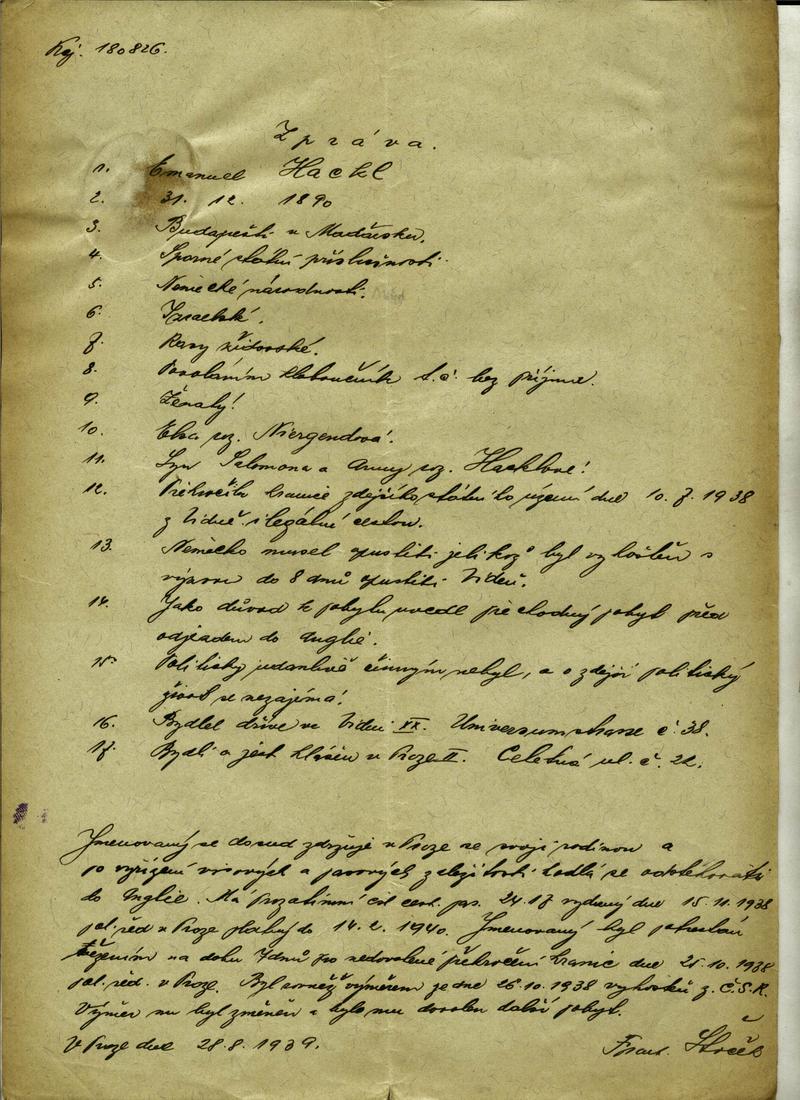 Kaj. 180826.
Zpráva.
1. Emanuel Hackl
2. 31. 12. 1890
3. Budapešti v Maďarsku.
4. Sporné státní příslušnosti.
5. Německé národnosti.
6. Israelské.
7. Rasy židovské.
8. Povoláním kloboučník t. č. bez příjmu.
9. Ženatý!
10. Elsa roz. Niergendová.
11. Syn Salomona a Anny roz. Hacklové!
12. Překročil hranice zdejšího státního území dne 10. 7. 1938
z Vídně ilegální cestou.
13. Německo musel opustiti jelikož byl vyhoštěn s
výzvou do 8 dnů opustiti Vídeň.
14. Jako důvod k pobytu uvedl přechodný pobyt před
odjezdem do Anglie.
15. Politicky údanlivě činným nebyl, a o zdejší politický
život se nezajímá!
16. Bydlel dříve ve Vídni XX. Universumstrasse č. 38.
17. Bydlí a jest hlášen v Praze II. Celetná ul. č. 22.
Jmenovaný se dosud zdržuje v Praze se svojí rodinou a
po vyřízení visových a pasových záležitostí hodlá se odstěhovati
do Anglie. Má prozatímní cest. pas. 2417 vydaný dne 15. 11. 1938
pol. řed v Praze platný do 14. 2. 1940. Jmenovaný byl potrestán
vězením na dobu 7 dnů pro nedovolené překročení hranic dne 25. 10. 1938
pol. řed. v Praze. Byl rovněž výměrem ze dne 26. 10. 1938 vyhoštěn z Č.S.R.
Výměr mu byl změněn a bylo mu dovolen další pobyt.
V Praze dne 28. 8. 1939.
Frant.